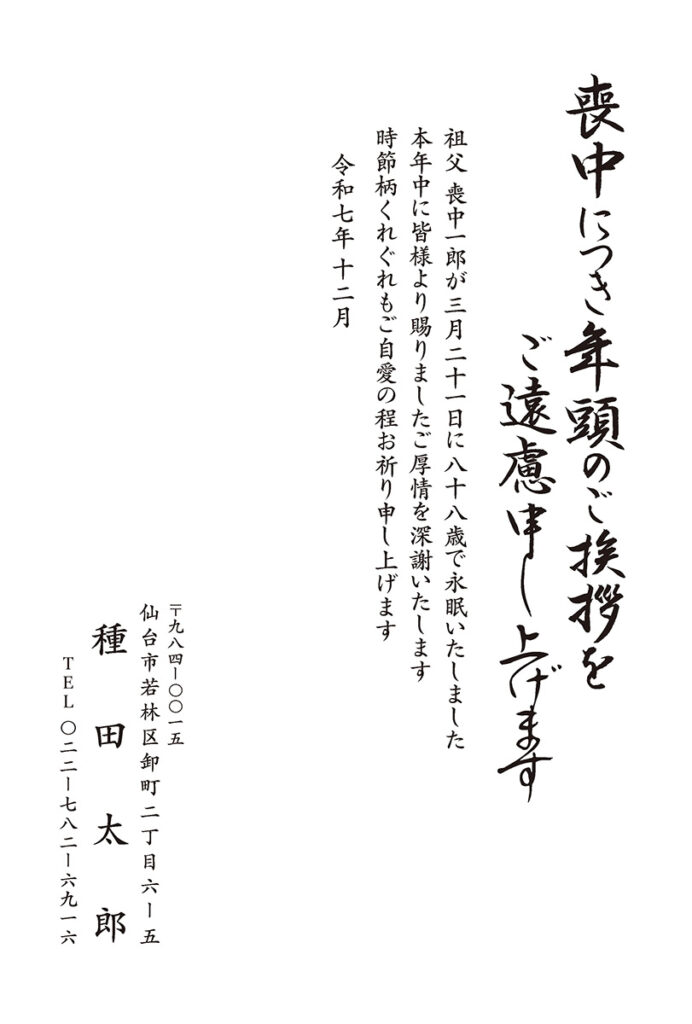 喪中につき年頭のご挨拶を
ご遠慮申し上げます
祖父 喪中一郎が三月二十一日に八十八歳で永眠いたしました
本年中に皆様より賜りましたご厚情を深謝いたします
時節柄くれぐれもご自愛の程お祈り申し上げます
令和七年十二月
〒九八四ー〇〇一五
仙台市若林区卸町二丁目六ー五
種田太郎
TEL〇二二ー七八二ー六九一六